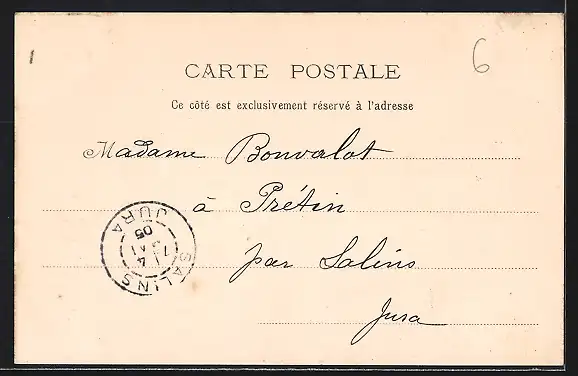 6
CARTE POSTALE
Ce côté est exclusivement réservé à l'adresse
Madame Bonvalot
à Prétin
par Salins
Jura
SALINS
JURA
05